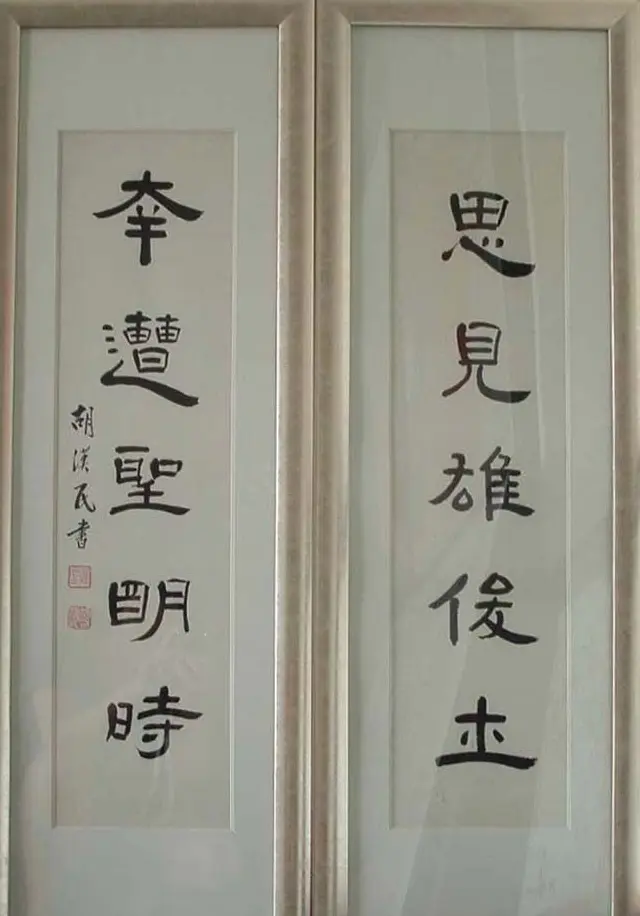 思見雄俊士
幸遭聖明時
胡漢民書